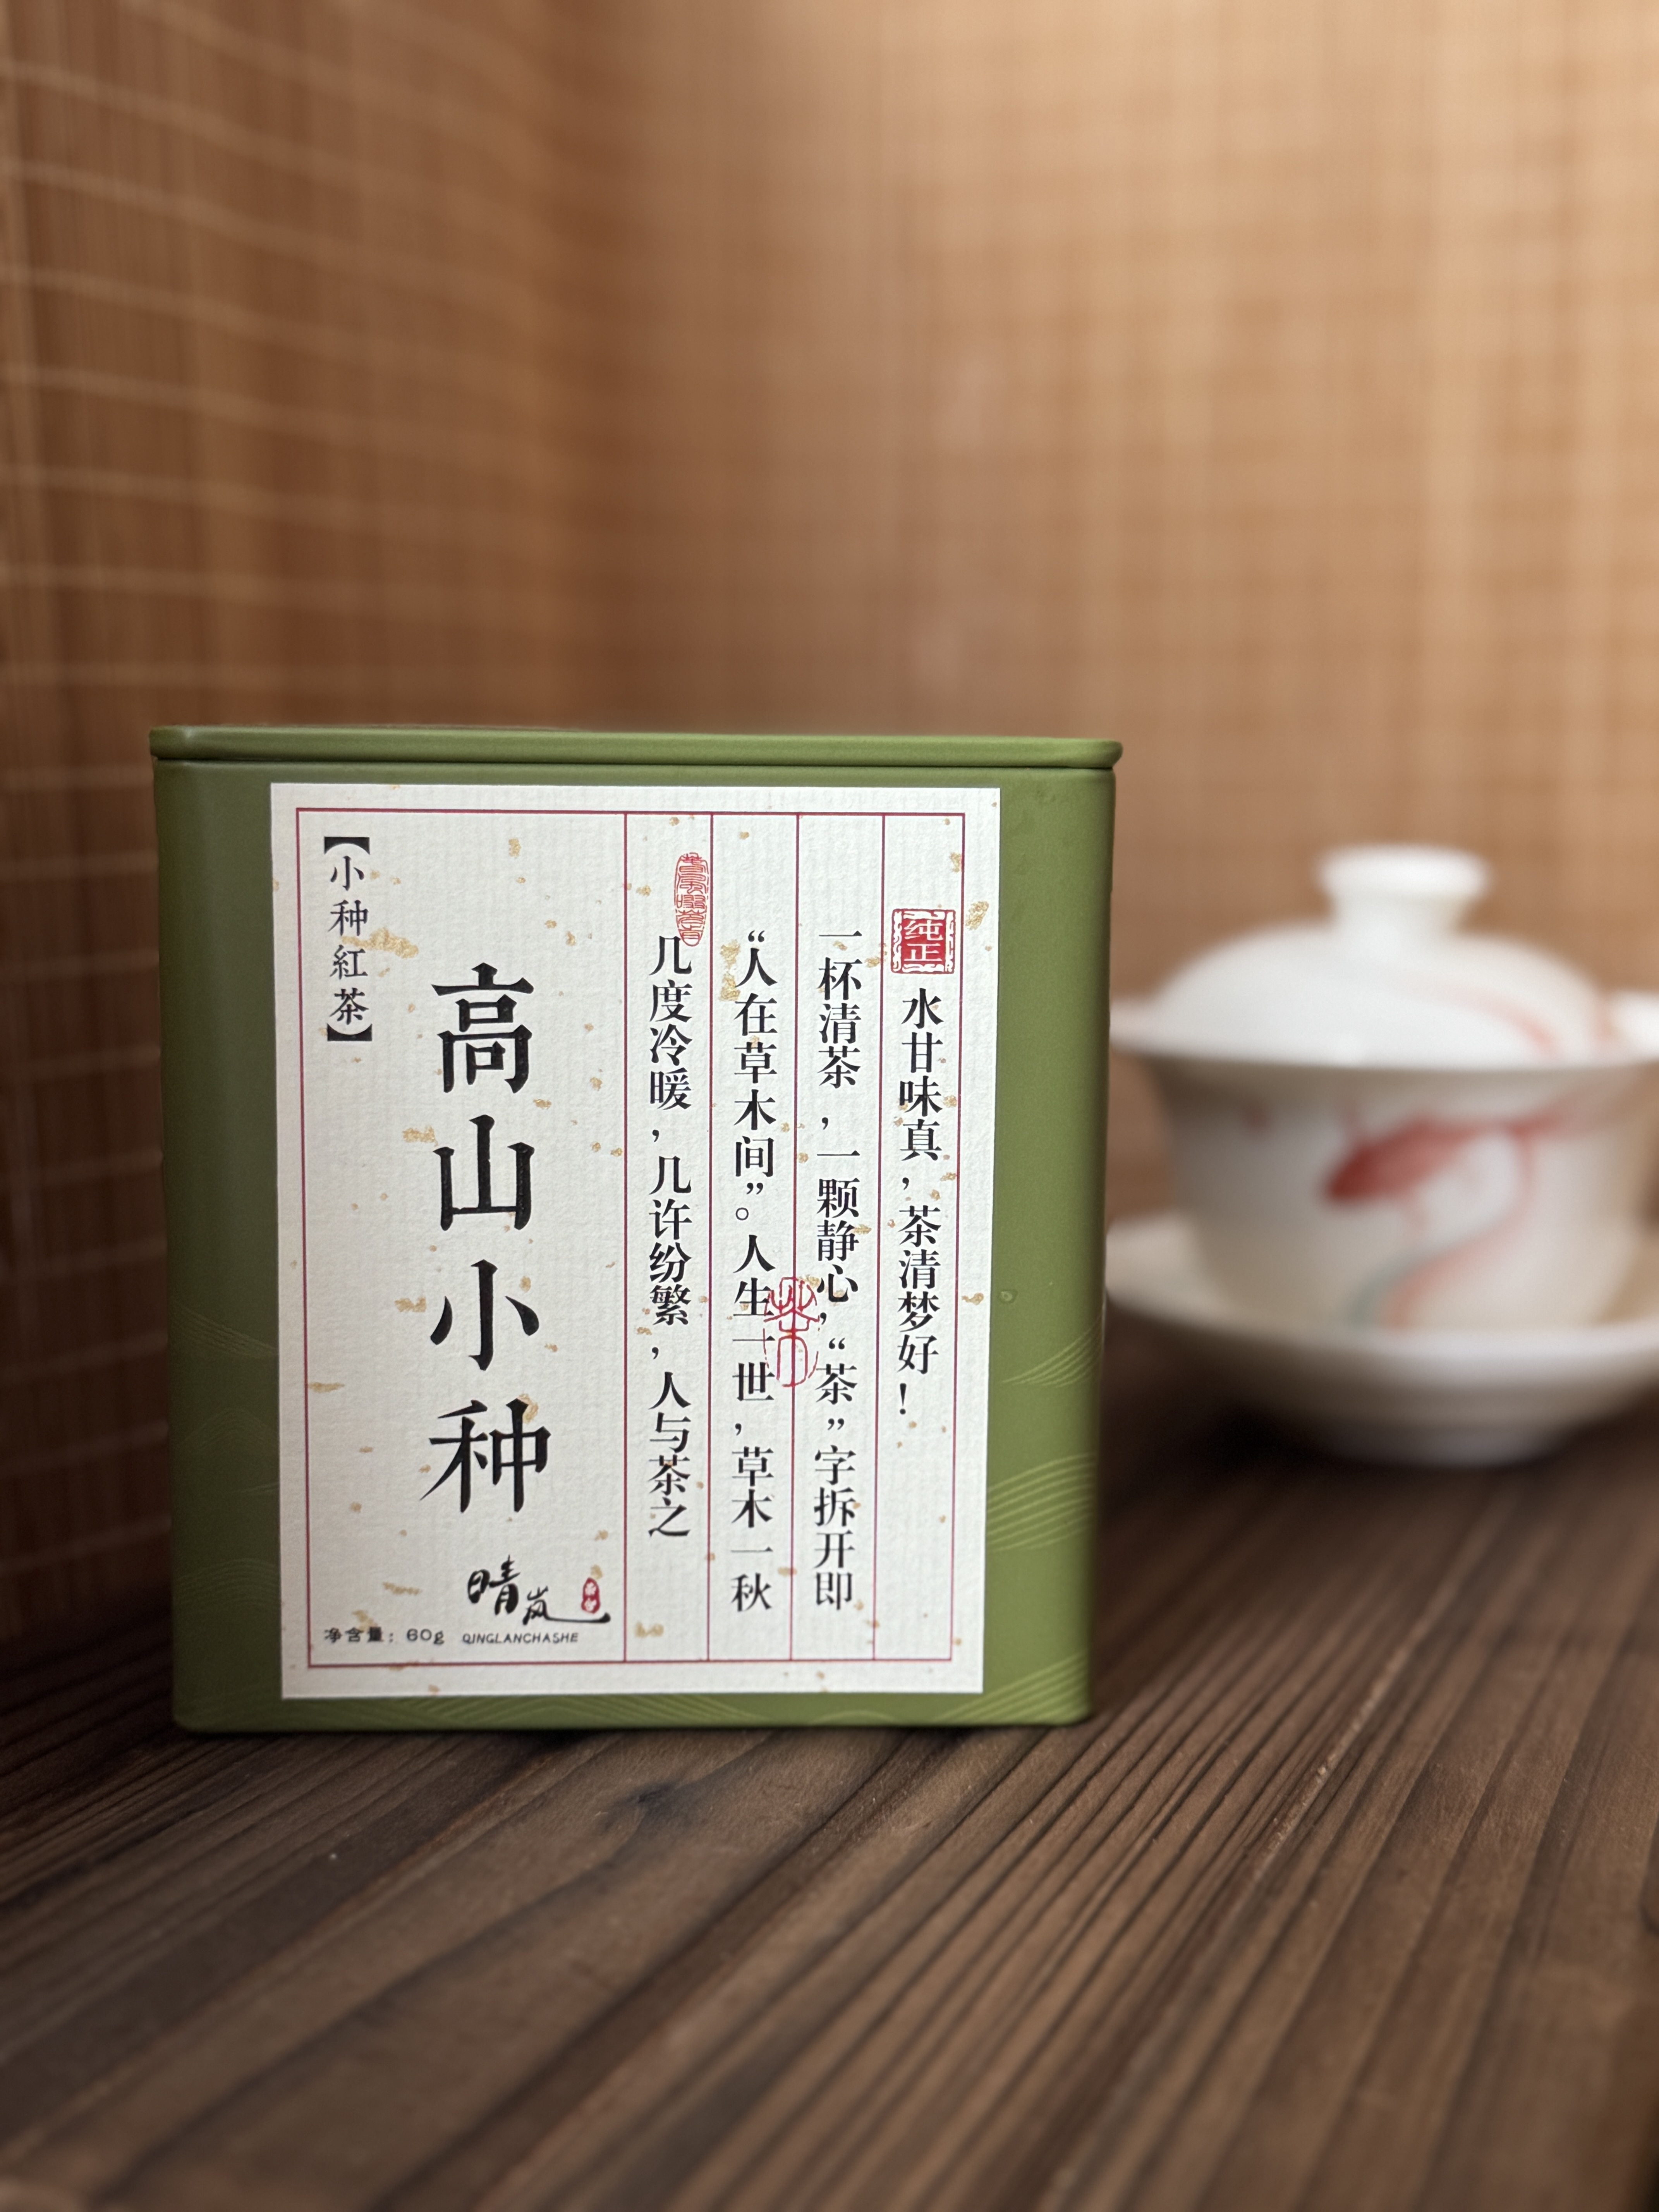 纯正
水甘味真，茶清梦好！
一杯清茶，一颗静心，“茶”字拆开即
“人在草木间”。人生一世，草木一秋
几度冷暖，几许纷繁，人与茶之
高山小种
【小种紅茶】
晴岚
净含量：60g
QINGLANCHASHE